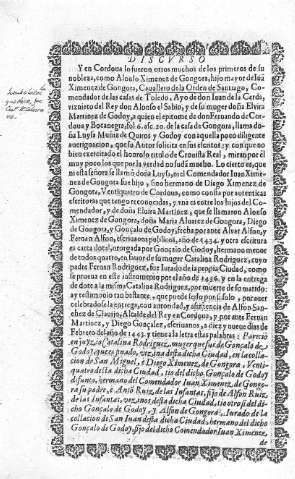 DISCVRSO
Y en Cordoua lo fueron otros muchos de los primeros de su
nobleza, como Alonso Ximenez de Gongora, hijo mayor de Iuã
Ximenez de Gongora, Cauallero de la Orden de Santiago, Co-
mendador de las casas de Toledo, Ayo de don Iuan de la Cerda,
viznieto del Rey don Alonso el Sabio, y de su muger doña Eluira
Martinez de Godoy, a quien el epitome de don Fernando de Cor-
doua y Bocanegra, fol. 6. afc. 20. de la casa de Gongora, llama do-
ña Luysa Muñiz de Queros y Godoy con aquella poco diligente
aueriguacion, que su Autor solicita en sus escritos, y con que no
bien exercitado el honroso titulo de Cronista Real, mira por el
muy poco los que por la verdad no suda mucho. Lo cierto es, que
ni esta señora se llamò doña Luysa, ni el Comendador Iuan Xime-
nez de Gongora fue hijo, sino hermano de Diego Ximenez de
Gongora, Ventiquatro de Cordoua, como consta por autenticas
escrituras que tengo reconocidas, y una es entre los hijos del Co-
mendador, y de doña Eluira Martinez, que se llamaron Alonso
Ximenez de Gongora, doña Maria Alonso, y Iuana Martinez, Diego
de Gongora, y Gonçalo de Godoy, fecha por ante Aluar Alfon, y
Fernan Alfon, escriuanos publicos, año de 1434. y otra escritura
es carta dotal, otorgada por Gonçalo de Godoy, hermano menor
de todos quatro, en fauor de su muger Catalina Rodriguez, cuyo
padre Fernan Rodriguez, fue Iurado de la propia Ciudad, como
se prueua en este instrumento por el año de 1396. y en la entrega
de dote a la misma Catalina Rodriguez, por muerte de su marido,
ay testimonio tan bastante, que puede suplir solo, por auer
celebradose la entrega, con autoridad, y assistencia de Alfon San-
chez de Claujo, Alcalde del Rey en Cordoua, y por ante Fernan
Martinez, y Diego Gonçalez, escriuanos, a diez y nueue dias de
Febrero del año de 1425. y tiene a la letra estas palabras: Pareciò
en juyzio Catalina Rodriguez, muger que fue de Gonçalo de
Godoy, que es finado, vezina desta dicha Ciudad, en la collacion
de San Miguel, e Diego Ximenez, de Gongora, Venti-
quatro desta dicha Ciudad, tio del dicho Gonçalo de Godoy
difunto, hermano del Comendador Iuan Ximenez, de Gongo-
ra su padre, e Anton Ruiz de las Infantas, fijo de Alfon Ruiz,
de las Infantas, vezinos desta dicha Ciudad, tio otrosi del di-
cho Gonçalo de Godoy, y Alfon de Gongora, Iurado de la
collacion de San Iuan desta dicha Ciudad, hermano del dicho
Gonçalo de Godoy, fijo del dicho Comendador Iuan Ximenez,
de